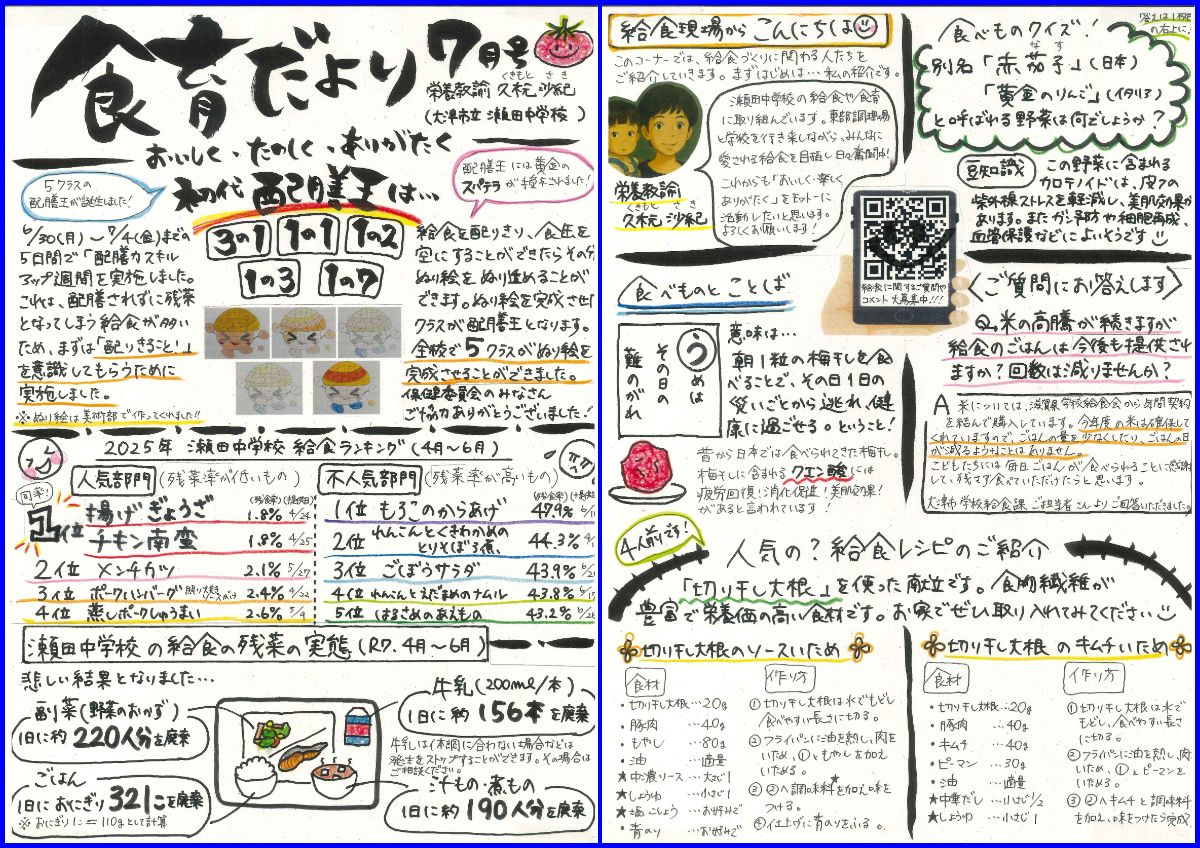 食育だより 7月号
くきもと さき
栄養教諭 久杬 沙紀
(大津市立 瀬田中学校 )
おいしく・たのしく・ありがたく
5クラスの
配膳王が誕生しました!
初代 配膳王は…
配膳王には黄金の
スパテラが授与されました!
3の1 1の1 1の2
1の3 1の7
6/30(月)～7/4(金)までの
5日間で「配膳力スキル
アップ週間を実施しました。
これは、配膳されずに残菜
となってしまう給食が多い
ため、まずは「配りきること!」
を意識してもらうために
実施しました。
※ぬり絵は美術部で作ってくれました!!
給食を配りきり、食缶を
空にすることができたらその分
ぬり絵をぬり進めることが
できます。ぬり絵を完成させた
クラスが配膳王となります。
全校で5クラスがぬり絵を
完成させることができました。
保健委員会のみなさん
ご協力ありがとうございました!
2025年 瀬田中学校 給食ランキング(4月～6月)
人気部門(残菜率が低いもの)
(残食率)(提供日)
同率!
1位 揚げぎょうざ 1.8% 4/24
チキン南蛮 1.8% 4/25
2位 メンチカツ 2.1% 5/27
3位 ポークハンバーグ 2.4% 4/22
4位 蒸しポークしゅうまい 2.6% 5/9
不人気部門(残菜率が高いもの)
(残食率)
1位 もろこのからあげ 47.9%
2位 れんこんとくきわかめの
とりそぼろ煮、 44.3%
3位 ごぼうサラダ 43.9%
4位 れんこんとえだまめのナムル 43.8%
5位 はるさめのあえもの 43.2%
瀬田中学校の給食の残菜の実態(R7.4月～6月)
悲しい結果となりました…
副菜(野菜のおかず)
1日に約220人分を廃棄
ごはん
1日におにぎり321こを廃棄
※おにぎり1こ＝110gとして計算
牛乳(200ml/本)
1日に約156本を廃棄
牛乳は体調に合わない場合などは
発注をストップすることができます。その場合は
ご相談ください。
汁もの・煮もの
1日に約190人分を廃棄
給食現場から こんにちは
このコーナーでは、給食づくりに関わる人たちを
ご紹介していきます。まずはじめは…私の紹介です。
栄養教諭
くきもと さき
久杬 沙紀
瀬田中学校の給食や食育
に取り組んでいます。東部調理場
と学校を行き来しながら、みんなに
愛される給食を目指し日々奮闘中!
これからも「おいしく・楽しく
ありがたく」をモットーに
活動したいと思います。
よろしくお願いします!
給食に関するご質問や
コメント大募集中!!!
答えは1枚目
の右上に!
食べものクイズ!
なす
別名「赤茄子」(日本)
「黄金のりんご」(イタリア)
と呼ばれる野菜は何でしょうか?
豆知識 この野菜に含まれる
カロテノイドは、皮フの
紫外線ストレスを軽減し、美肌効果が
あります。またがん予防や細胞再成、
血管保護などによいそうです
食べものと ことば
うめは
その日の
難のがれ
意味は…
朝1粒の梅干しを食
べることで、その日1日の
災いごとから逃れ、健
康に過ごせる。ということ!
昔から日本では食べられてきた梅干し。
梅干しに含まれるクエン酸には
疲労回復!消化促進!美肌効果!
があると言われています!
〈ご質問にお答えします〉
Q.米の高騰が続きますが
給食のごはんは今後も提供され
ますか?回数は減りませんか?
A 米については、滋賀県学校給食会から年間契約
を結んで購入しています。今年度の米は確保して
くれていますので、ごはんの量を少なくしたり、ごはんの日
が減るようなことはありません。
こどもたちには毎日ごはんが食べられることに感謝
して、残さず食べていただけたらと思います。
大津市学校給食課ご担当者さんよりご回答いただきました。
4人前です!
人気の?給食レシピのご紹介
「切り干し大根」を使った献立です。食物繊維が
豊富で栄養価の高い食材です。お家でぜひ取り入れてみてください
切り干し大根のソースいため
食材
・切り干し大根…20g
・豚肉 …40g
・もやし …80g
・油 …適量
★中濃ソース …大さじ1
★しょうゆ …小さじ1
★塩こしょう …お好みで
・青のり …お好みで
作り方
①切り干し大根は水でもどし
食べやすい長さに切る。
②フライパンに油を熱し、肉を
いため、①ともやしを加え
いためる。
③②へ調味料★を加え味を
つける。
④仕上げに青のりをふる。
切り干し大根のキムチいため
食材
・切り干し大根…20g
・豚肉 …40g
・キムチ …40g
・ピーマン …30g
・油 …適量
★中華だし …小さじ1/2
★しょうゆ …小さじ1
作り方
①切り干し大根は水で
もどし、食べやすい長さ
に切る。
②フライパンに油を熱し、肉
いため、①とピーマンを
いためる。
③②へキムチと調味料
を加え、味をつけたら完成